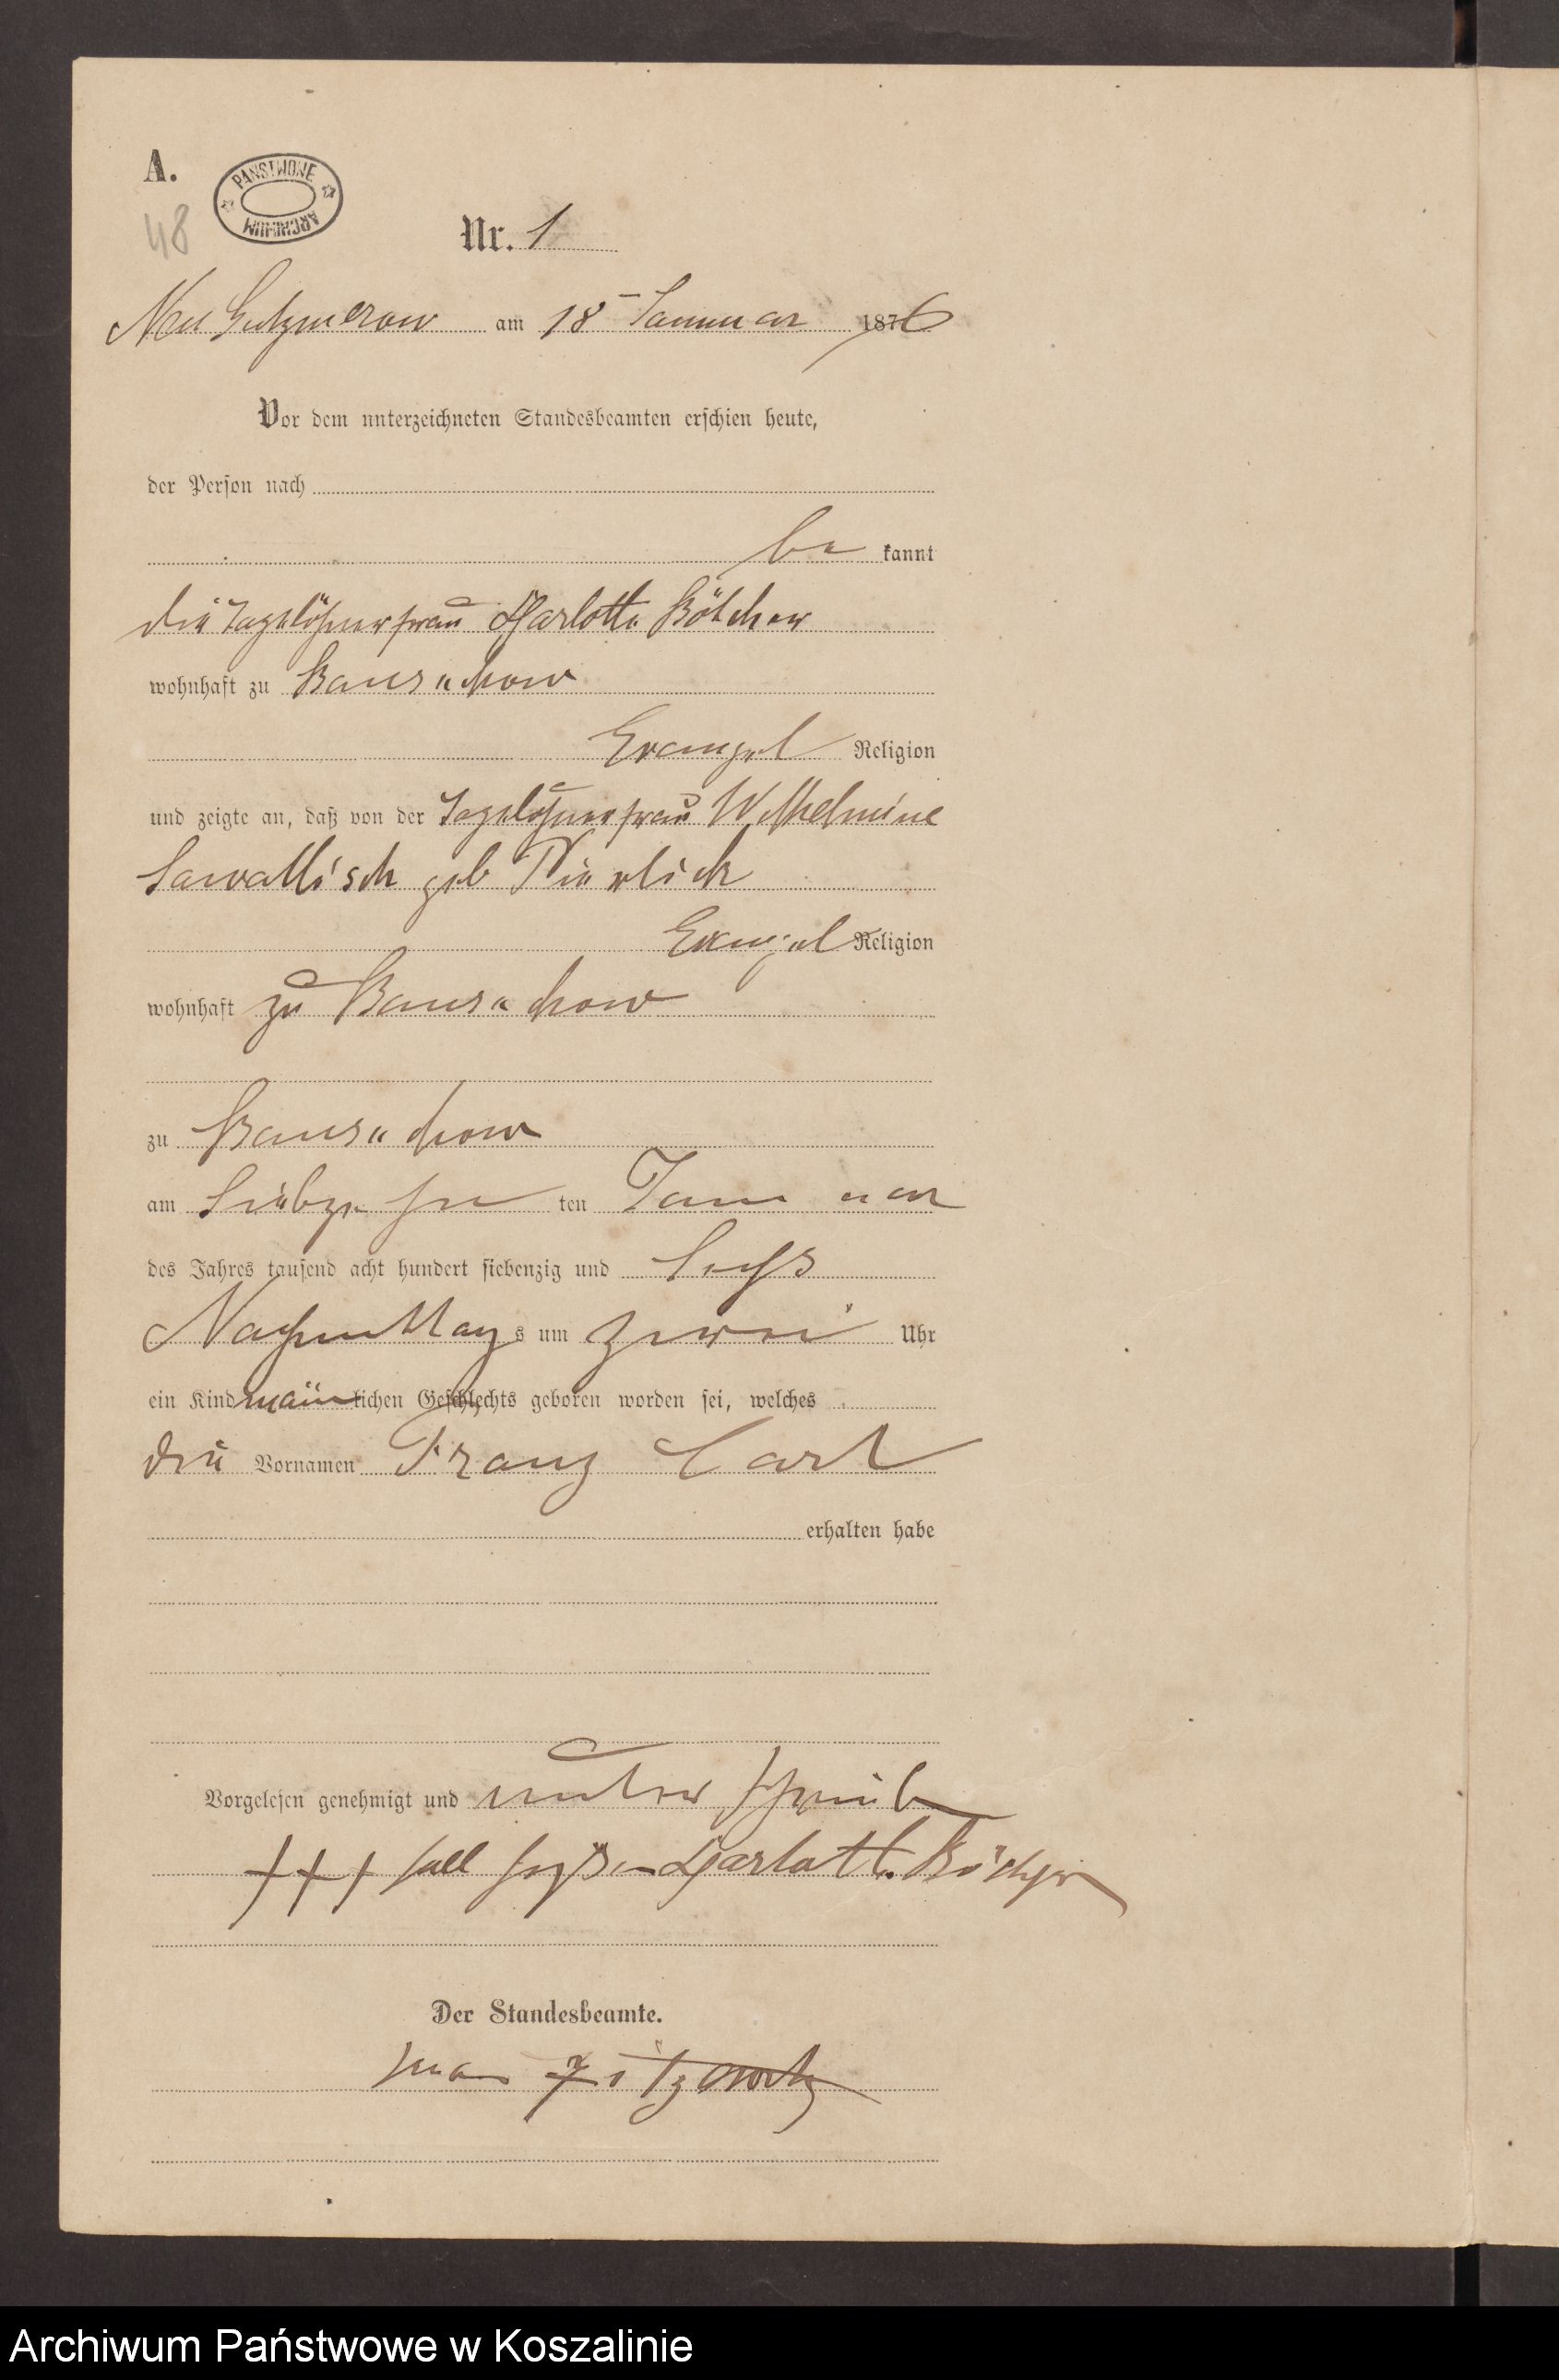 A.
PAŃSTWOWE ARCHIWUM
48
Nr. 1
Neu Gutzmerow am 18 Januar 1876
Vor dem unterzeichneten Standesbeamten erschien heute,
der Person nach
be kannt
die Tagelöhnerfrau Charlotte Bötcher
wohnhaft zu
Evangel Religion
und zeigte an, daß von der Tagelöhnerfrau Wilhelmine
Sawallisch geb
Evangel Religion
wohnhaft zu
zu
am Siebzehn ten Januar
des Jahres tausend acht hundert siebenzig und Sechs
Nachmittags um zwei Uhr
ein Kind männlichen Geschlechts geboren worden sei, welches
die Vornamen Franz Carl
erhalten habe
Vorgelesen genehmigt und unterschrieb
+++ soll heißen Charlotte Bötcher
Der Standesbeamte.
von Zitzewitz
Archiwum Państwowe w Koszalinie